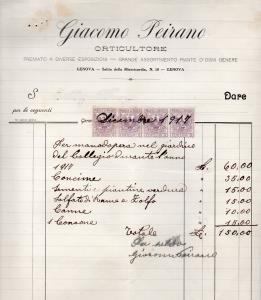 Giacomo Peirano
ORTICULTORE
PREMIATO A DIVERSE ESPOSIZIONI — GRANDE ASSORTIMENTO PIANTE D'OGNI GENERE
GENOVA — Salita della Misericordia, N. — GENOVA
S Dare
per le seguenti
Dicembre 1917
Per manodopera nel giardino
del Collegio durante l'anno
1917 L. 60,00
Concime " 35.00
Sementi e piantine verdura " 15.00
Solfato di Rame e Zolfo " 15.00
Canne " 10.00
1 " 15.00
Totale L. 150,00
Per saldo
Giacomo Peirano